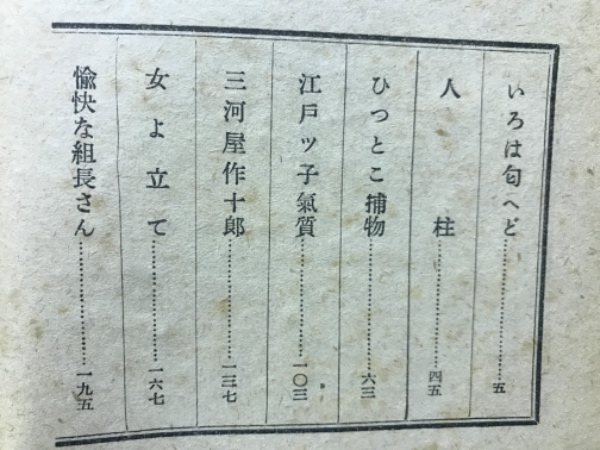 いろは匂へど……………………五
人柱……………………四五
ひつとこ捕物……………………六三
江戸ツ子氣質……………………一〇三
三河屋作十郎……………………一三七
女よ立て……………………一六七
愉快な組長さん……………………一九五